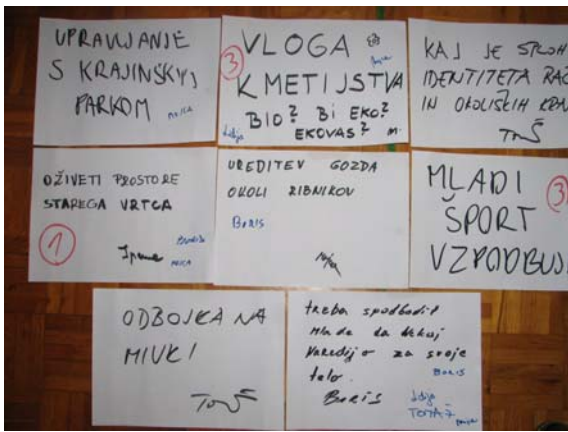 UPRAVLJANJE
S KRAJINSKIM
PARKOM
MOJCA
3
VLOGA
KMETIJSTVA
BIO? BI EKO?
EKOVAS?
Lidija
M.
KAJ JE SPLOH
IDENTITETA RAČ
IN OKOLIŠKIH KRA
TomŠ
OŽIVETI PROSTORE
STAREGA VRTCA
1
Irena
BORIS
MOJCA
UREDITEV GOZDA
OKOLI RIBNIKOV
BORIS
MLADI
3
ŠPORT
VZPODBUJ
ODBOJKA NA
MIVKI
TomŠ
treba spodbodit
mlade da nekaj
naredijo za svoje
telo.
BORIS
BORIS
Lidija
TOMAŽ